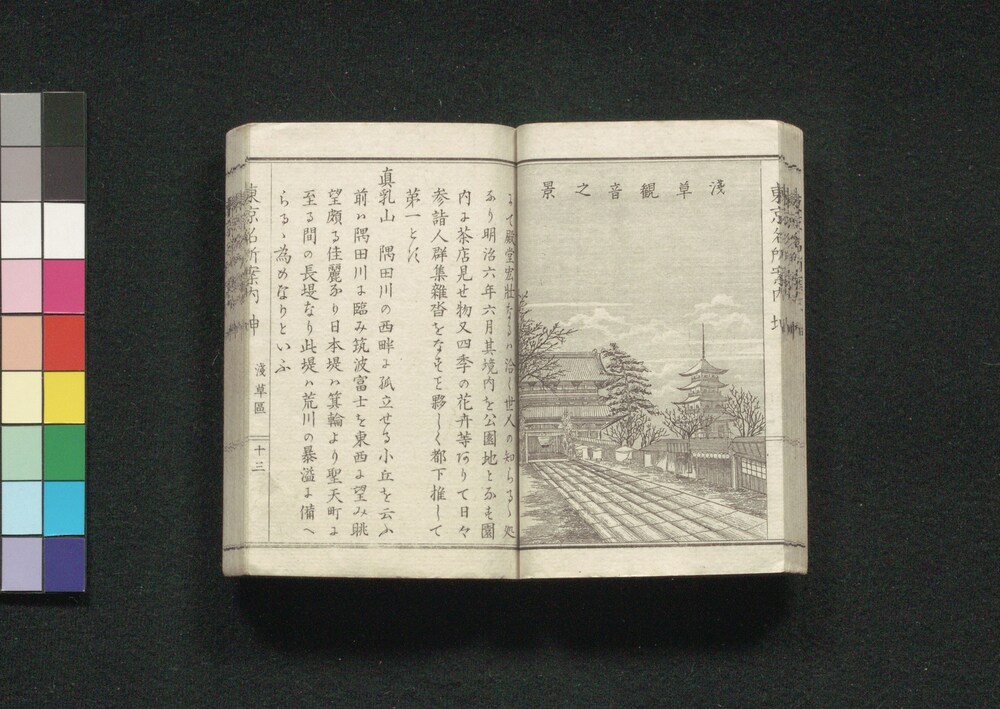 淺草觀音之景
にて殿堂宏壯なるハ洽く世人の知らるゝ処
なり明治六年六月其境内を公園地となも園
内に茶店見せ物又四季の花卉等ありて日々
参詣人群集雜沓をなすを夥しく都下推して
第一とす
真乳山　隅田川の西畔に孤立せる小丘を云ふ
前ハ隅田川に臨み筑波富士を東西に望み眺
望頗る佳麗なり日本堤ハ箕輪より聖天町に
至る間の長堤なり此堤ハ荒川の暴溢に備へ
らるゝ為めなりといふ
東京名所案内
淺草區
十三
東京名所案内